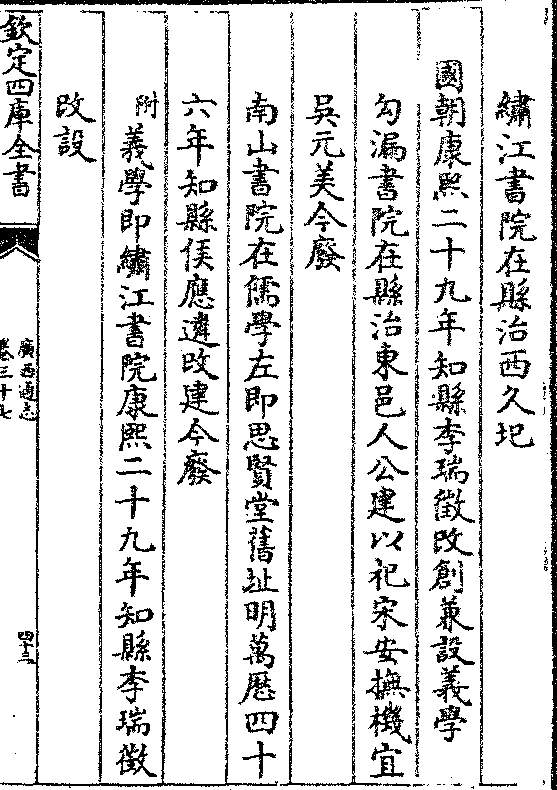 繡江書院在縣治西久圮
國朝康熙二十九年知縣李瑞徵改創兼設義學
勾漏書院在縣治東邑人公建以祀宋安撫機宜
吳元美今廢
南山書院在儒學左即思賢堂舊址明萬厯四十
六年知縣侯應遴改建今廢
附義學即繡江書院康熙二十九年知縣李瑞徵
改設
欽定四庫全書
廣西通志
卷三十七
四十三